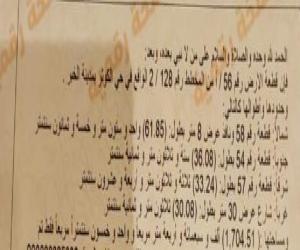 الحمد لله وحده والصلاة والسلام على من لا نبي بعده، وبعد:
فإن قطعة الارض رقم 56 / أ من المخطط رقم 128 / 2 الواقع في حي الكوثر بمدينة الخبر .
وحدودها وأطوالها كالتالي:
شمالاً: قطعة 58 ونافذ عرض 8 متر بطول: (61.85) واحد و ستون متر و خمسة و ثمانون سنتمتر
جنوباً: قطعة رقم 54 بطول: (36.08) ستة و ثلاثون متر و ثمانية سنتمتر
شرقاً: قطعة رقم 57 بطول: (33.24) ثلاثة و ثلاثون متر و أربعة و عشرون سنتمتر
غرباً: شارع عرض 30 متر بطول: (30.08) ثلاثون متر و ثمانية سنتمتر
ومساحتها: (1,704.51) ألف و سبعمائة و أربعة متر مربعا و واحد و خمسون سنتمتر مربعا فقط